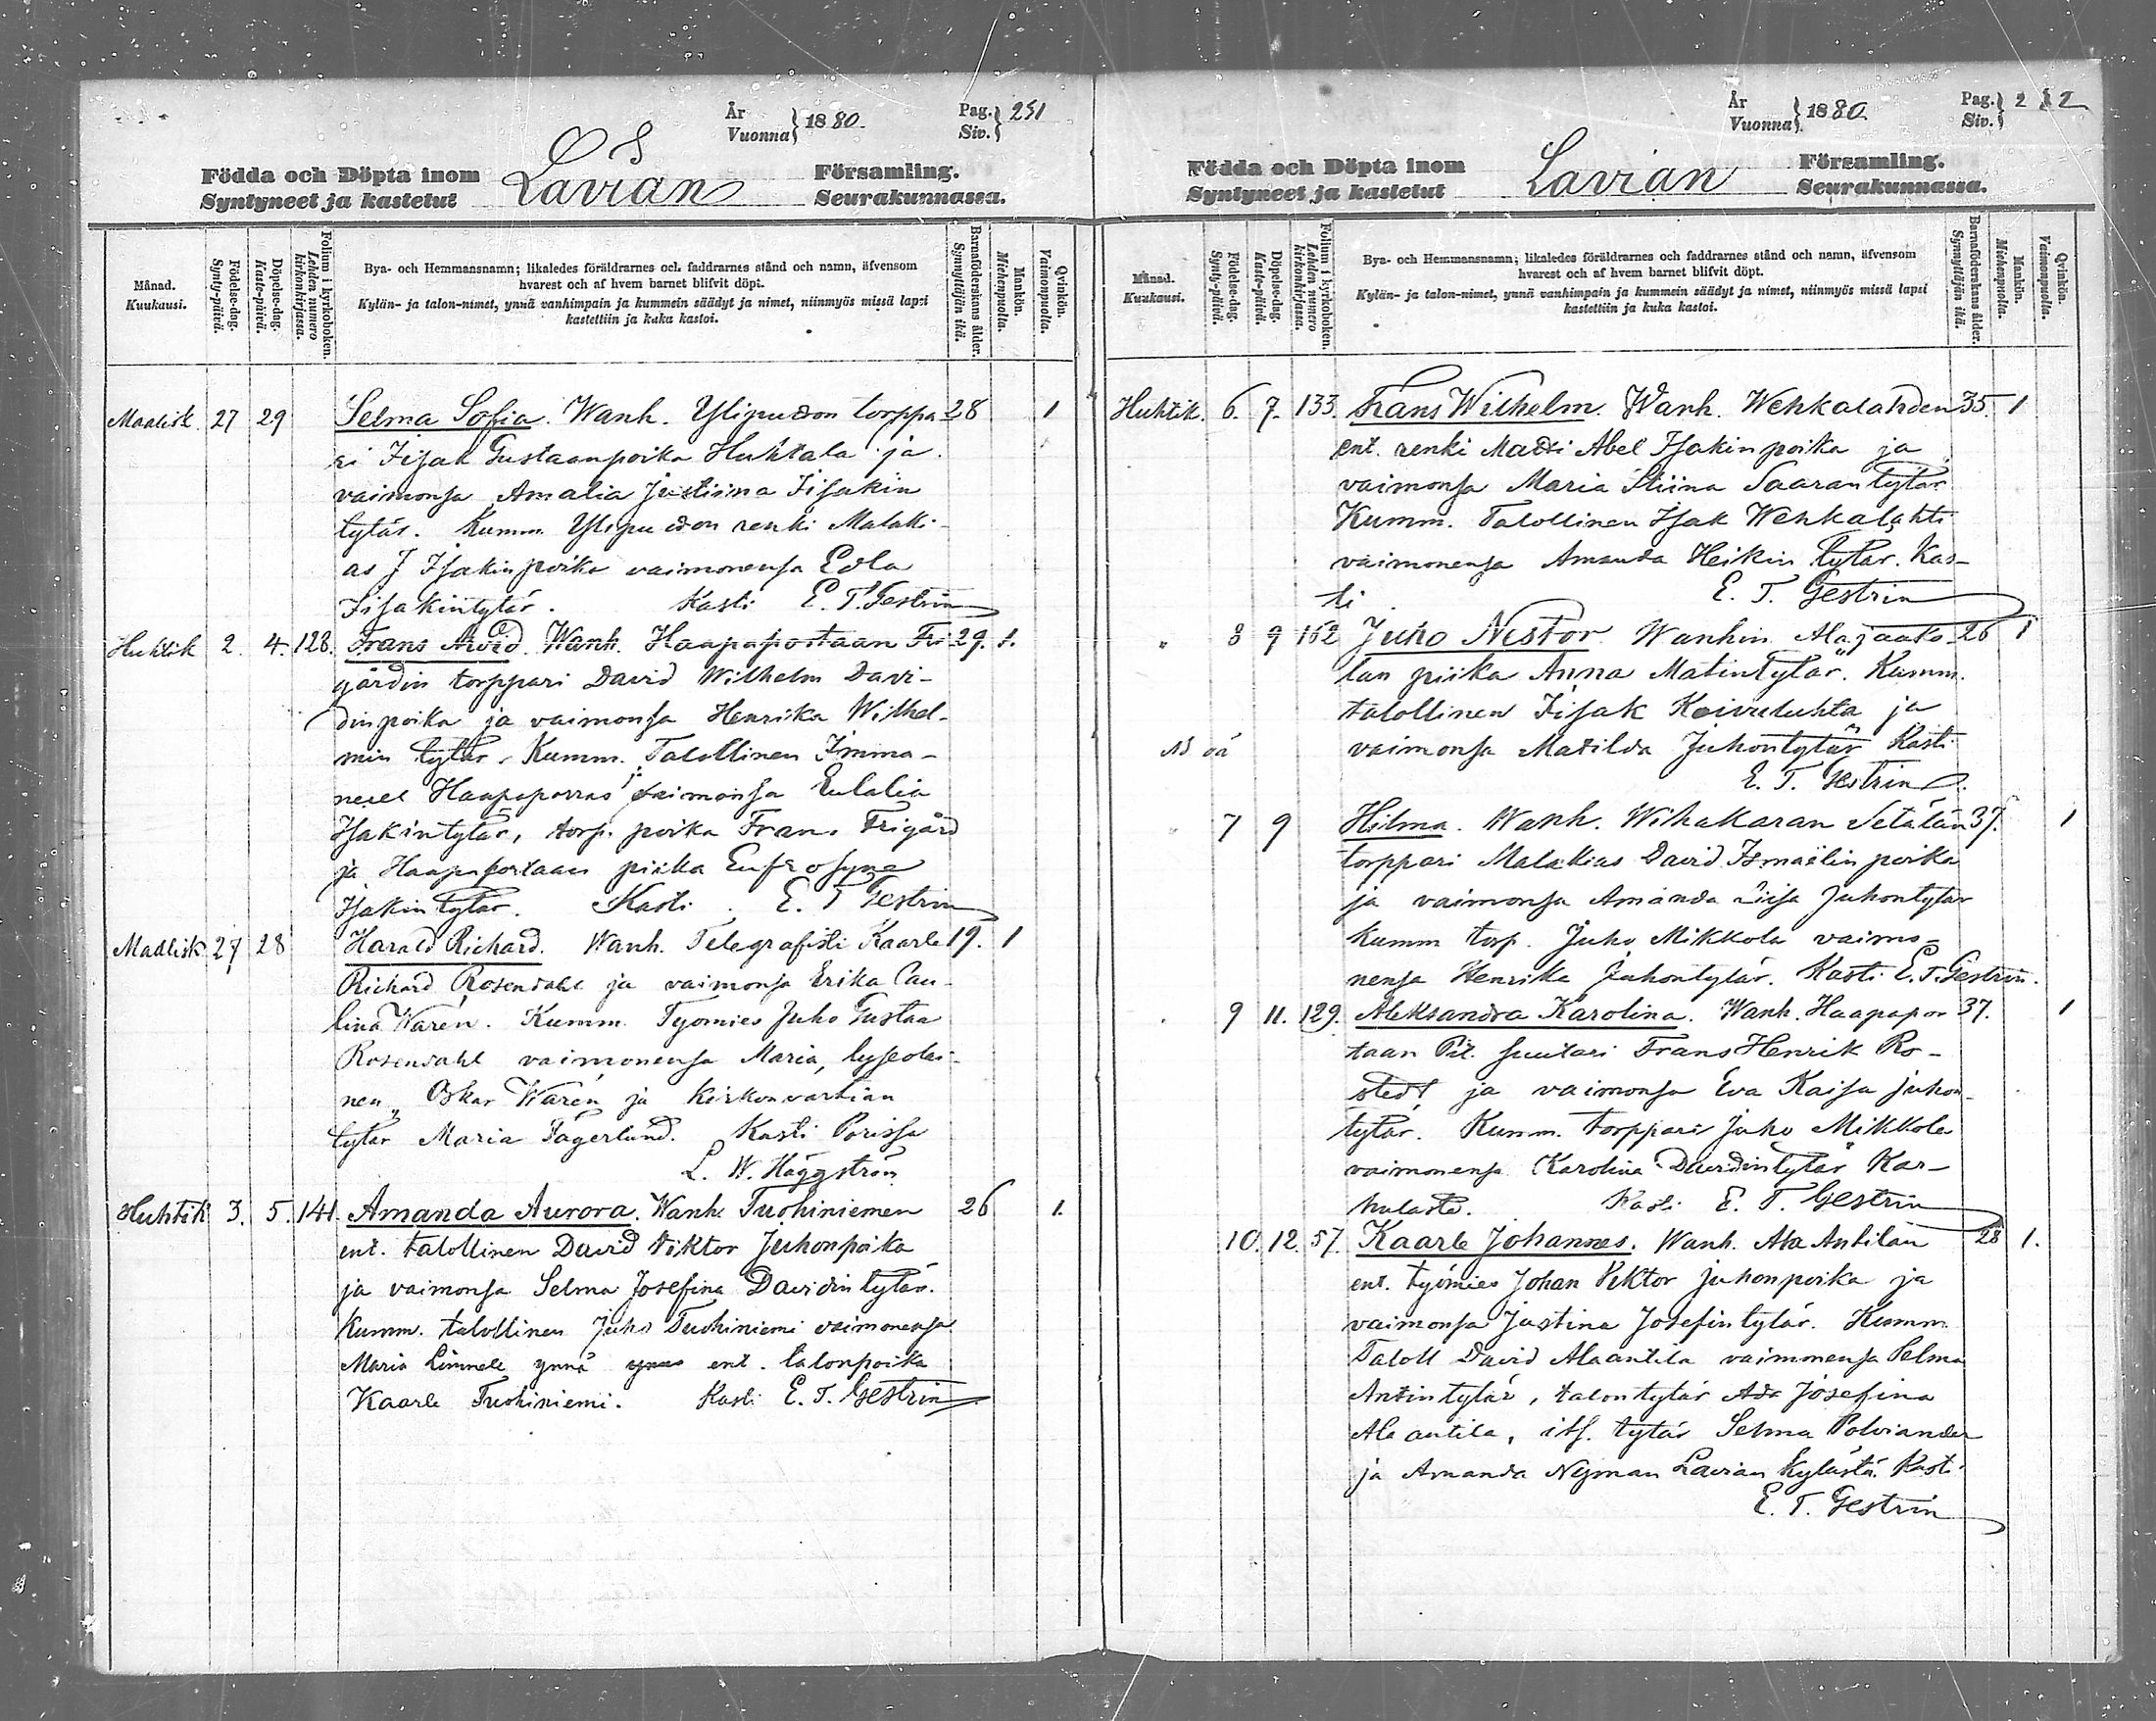 År
Vuonna } 1880.
Pag.
Siv. } 251
Födda och Döpta inom Församling.
Syntyneet ja kastetut Lavian Seurakunnassa.
Månad.
Kuukausi.
Födelse-dag.
Synty-päivä.
Döpelse-dag.
Kaste-päivä.
Folium i kyrkoboken.
Lehden numero
kirkonkirjassa.
Bya- och Hemmansnamn; likaledes föräldrarnes och faddrarnes stånd och namn, äfvensom
hvarest och af hvem barnet blifvit döpt.
Kylän- ja talon-nimet, ynnä vanhimpain ja kummein säädyt ja nimet, niinmyös missä lapsi
kastettiin ja kuka kastoi.
Barnaföderskans ålder.
Synnyttäjän ikä.
Mankön.
Miehenpuolla.
Qvinkön.
Vaimonpuolla.
Maalisk. 27 29 Selma Sofia. Wanh. Ylipudon torppa 28 1
ri Iisak Gustaanpoika Huhtala ja
vaimonsa Amalia Justiina Iisakin
tytär. Kumm. Ylipudon renki Malaki-
as J Isakinpoika vaimonensa Edla
Iisakintytär. Kasti E. T. Gestrin
Huhtik 2. 4. 128. Frans Arvid. Wanh. Haapaportaan Fri 29. 1.
gårdin torppari David Wilhelm Davi-
dinpoika ja vaimonsa Henrika Wilhel-
min tytär. Kumm. Talollinen Imma-
nuel Haapaporras ja vaimonsa Eulalia
Isakintytär, torp. poika Frans Frigård
ja Haapaportaan piika Eufrosyne
Isakintytär. Kasti. E. T Gestrin
Maalisk 27 28 Harald Richard. Wanh. Telegrafisti Kaarle 19. 1
Richard Rosendahl ja vaimonsa Erika Pau-
lina Warén. Kumm. Tyomies Juho Gustaa
Rosendahl vaimonensa Maria, lyseolai-
nen Oskar Warén ja kirkonvartian
tytär Maria Fagerlund. Kasti Porissa
L. W. Häggström
Huhtik 3. 5. 141. Amanda Aurora. Wanh. Tuohiniemen 26 1.
ent. talollinen David Viktor Juhonpoika
ja vaimonsa Selma Josefina Davidin tytär.
Kumm. talollinen Juho Tuohiniemi vaimonensa
Maria ynnä ent. talonpoika
Kaarle Tuohiniemi. Kasti E. T. Gestrin
År
Vuonna } 1880.
Pag.
Siv. } 252
Födda och Döpta inom Församling.
Syntyneet ja kastetut Lavian Seurakunnassa.
Månad.
Kuukausi.
Födelse-dag.
Synty-päivä.
Döpelse-dag.
Kaste-päivä.
Folium i kyrkoboken.
Lehden numero
kirkonkirjassa.
Bya- och Hemmansnamn; likaledes föräldrarnes och faddrarnes stånd och namn, äfvensom
hvarest och af hvem barnet blifvit döpt.
Kylän- ja talon-nimet, ynnä vanhimpain ja kummein säädyt ja nimet, niinmyös missä lapsi
kastettiin ja kuka kastoi.
Barnaföderskans ålder.
Synnyttäjän ikä.
Mankön.
Miehenpuolla.
Qvinkön.
Vaimonpuolla.
Huhtik. 6. 7. 133. Frans Wilhelm. Wanh. Wehkalahden 35. 1
ent. renki Matti Abel Isakinpoika ja
vaimonsa Maria Stiina Saarantytär
Kumm. Talollinen Isak Wehkalahti
vaimonensa Amanda Heikin tytär. Kas-
ti. E. T. Gestrin
" 8 9 162 Juho Nestor. Wanhin Alajaako 26 1
lan piika Anna Matintytär. Kumm.
talollinen Iisak Koivuluhta ja
oä vaimonsa Matilda Juhontytär Kasti
E. T. Gestrin
" 7 9 Hilma. Wanh. Wihakaran Setälän 37. 1
torppari Malakias David Ismaëlin poika
ja vaimonsa Amanda Liisa Juhontytär
kumm torp. Juho Mikkola vaimo-
nensa Henrika Juhontytär. Kasti E. T. Gestrin.
9 11. 129. Aleksandra Karolina. Wanh. Haapapor 37. 1
taan Pit. suutari Frans Henrik Ro-
stedt ja vaimonsa Eva Kaisa Juhon-
tytär. Kumm. torppari Juho Mikkola
vaimonensa Karolina Davidintytär Kar-
hulasta. Kasti E. T. Gestrin
10. 12. 57. Kaarle Johannes. Wanh. Ala Antilan 28 1.
ent. työmies Johan Viktor Juhonpoika ja
vaimonsa Justina Josefintytär. Kumm
Taloll David Alaantila vaimonensa Selma
Antintytär, talontytär Ada Josefina
Alaantila, its. tytär Selma Polviander
ja Amanda Nyman Lavian kylästä. Kasti.
E. T. Gestrin